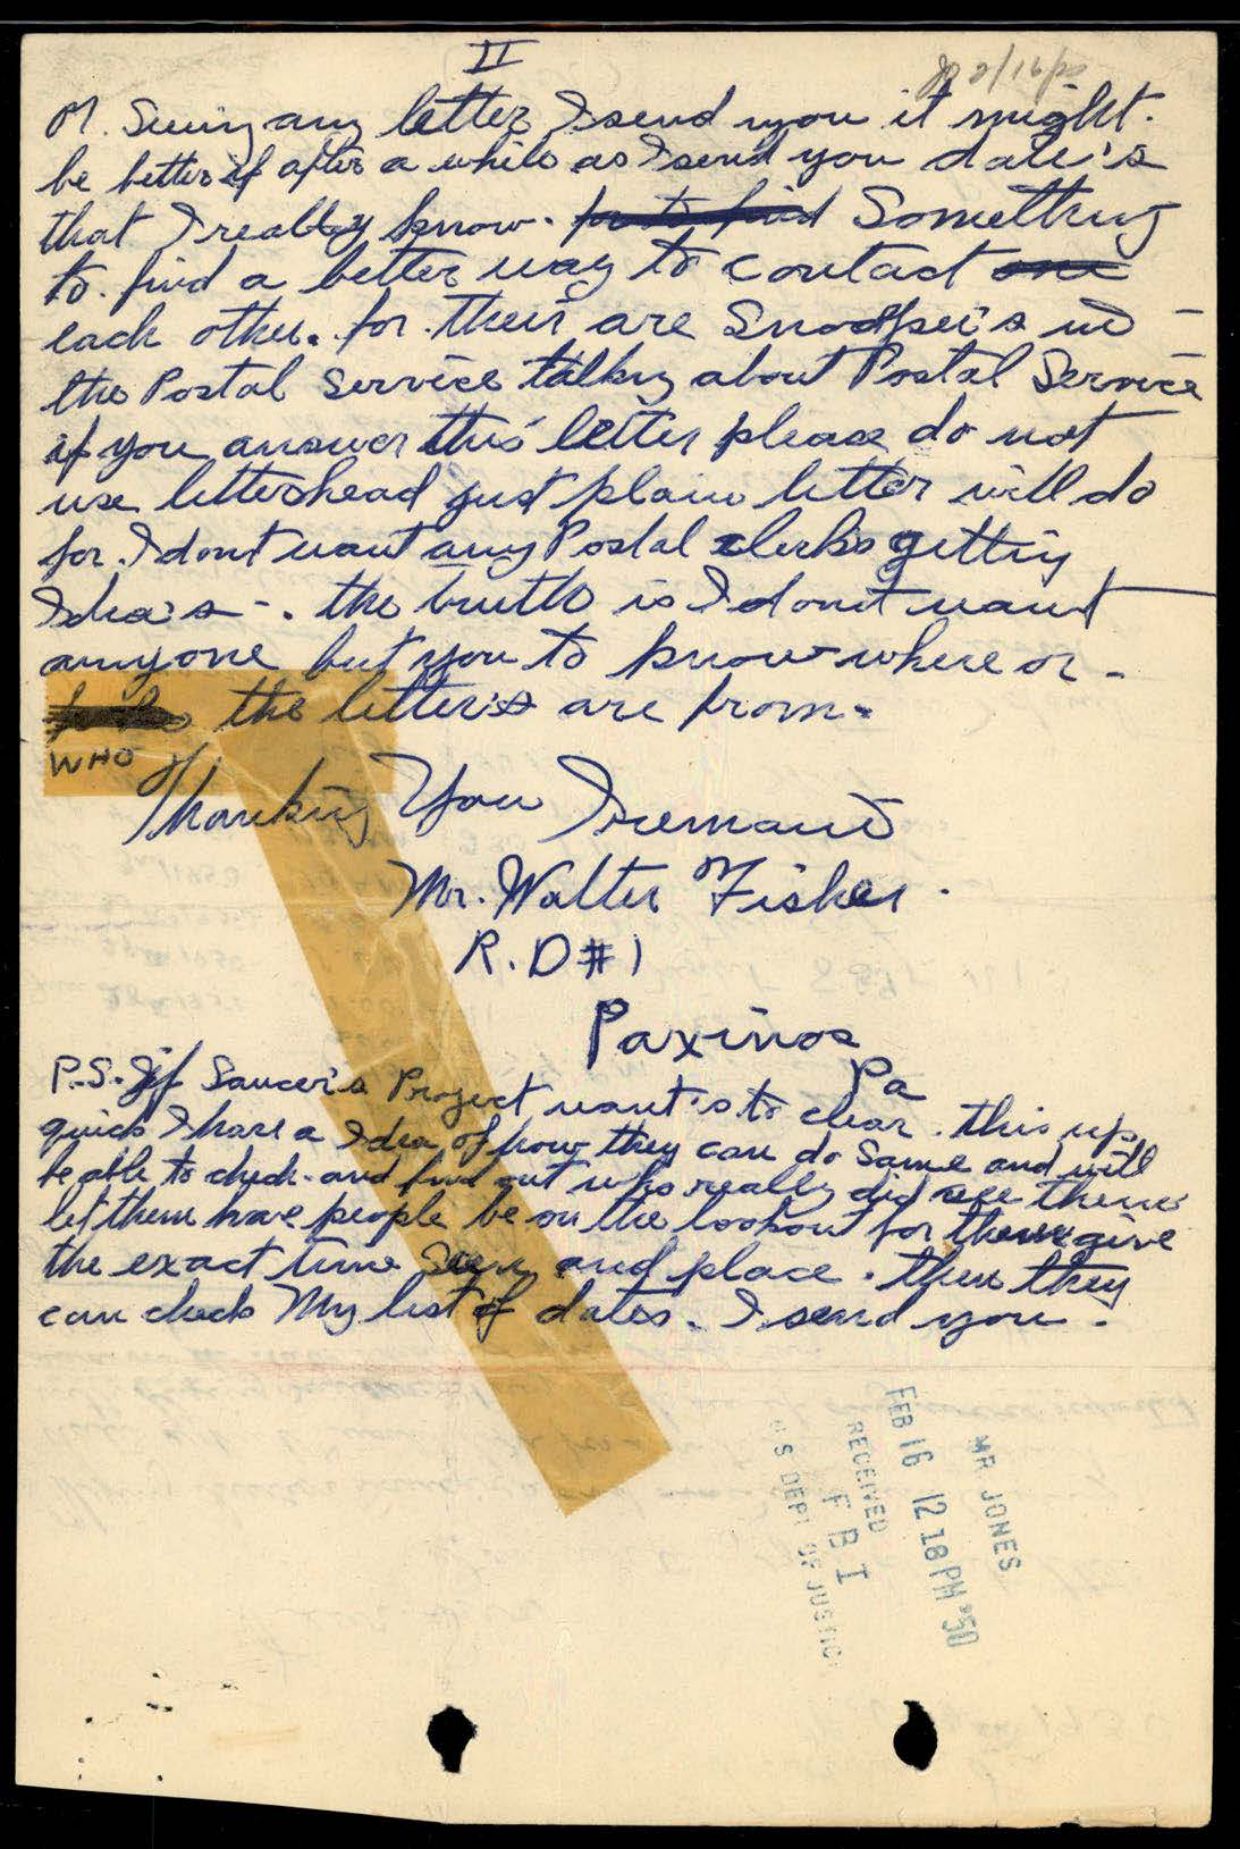 II
2/16/50
or. Seeing any letter I send you it might.
be better if after a while as I send you date's
that I really know. Something
to. find a better way to contact one
each other. for. their are Snoopei's in
the Postal Service talking about Postal Service
if you answer this letter please do not
use letterhead just plain letter will do
for. I dont want any Postal clerks getting
Idea's -. the truth is I dont want
anyone but you to know where or -
the letter's are from.
WHO
Thanking You I remain
Mr. Walter Fisher.
R.D #1
Paxinos
Pa
P.S. If Saucer's Project want's to clear. this up
quick I have a Idea of how they can do Same and will
be able to check. and find out who really did see them
let them have people be on the lookout for them give
the exact time Seen and place. then they
can check My list of dates. I send you.
MR JONES
FEB 16 12 18 PM '50
RECEIVED
F B I
U S DEPT OF JUSTIC